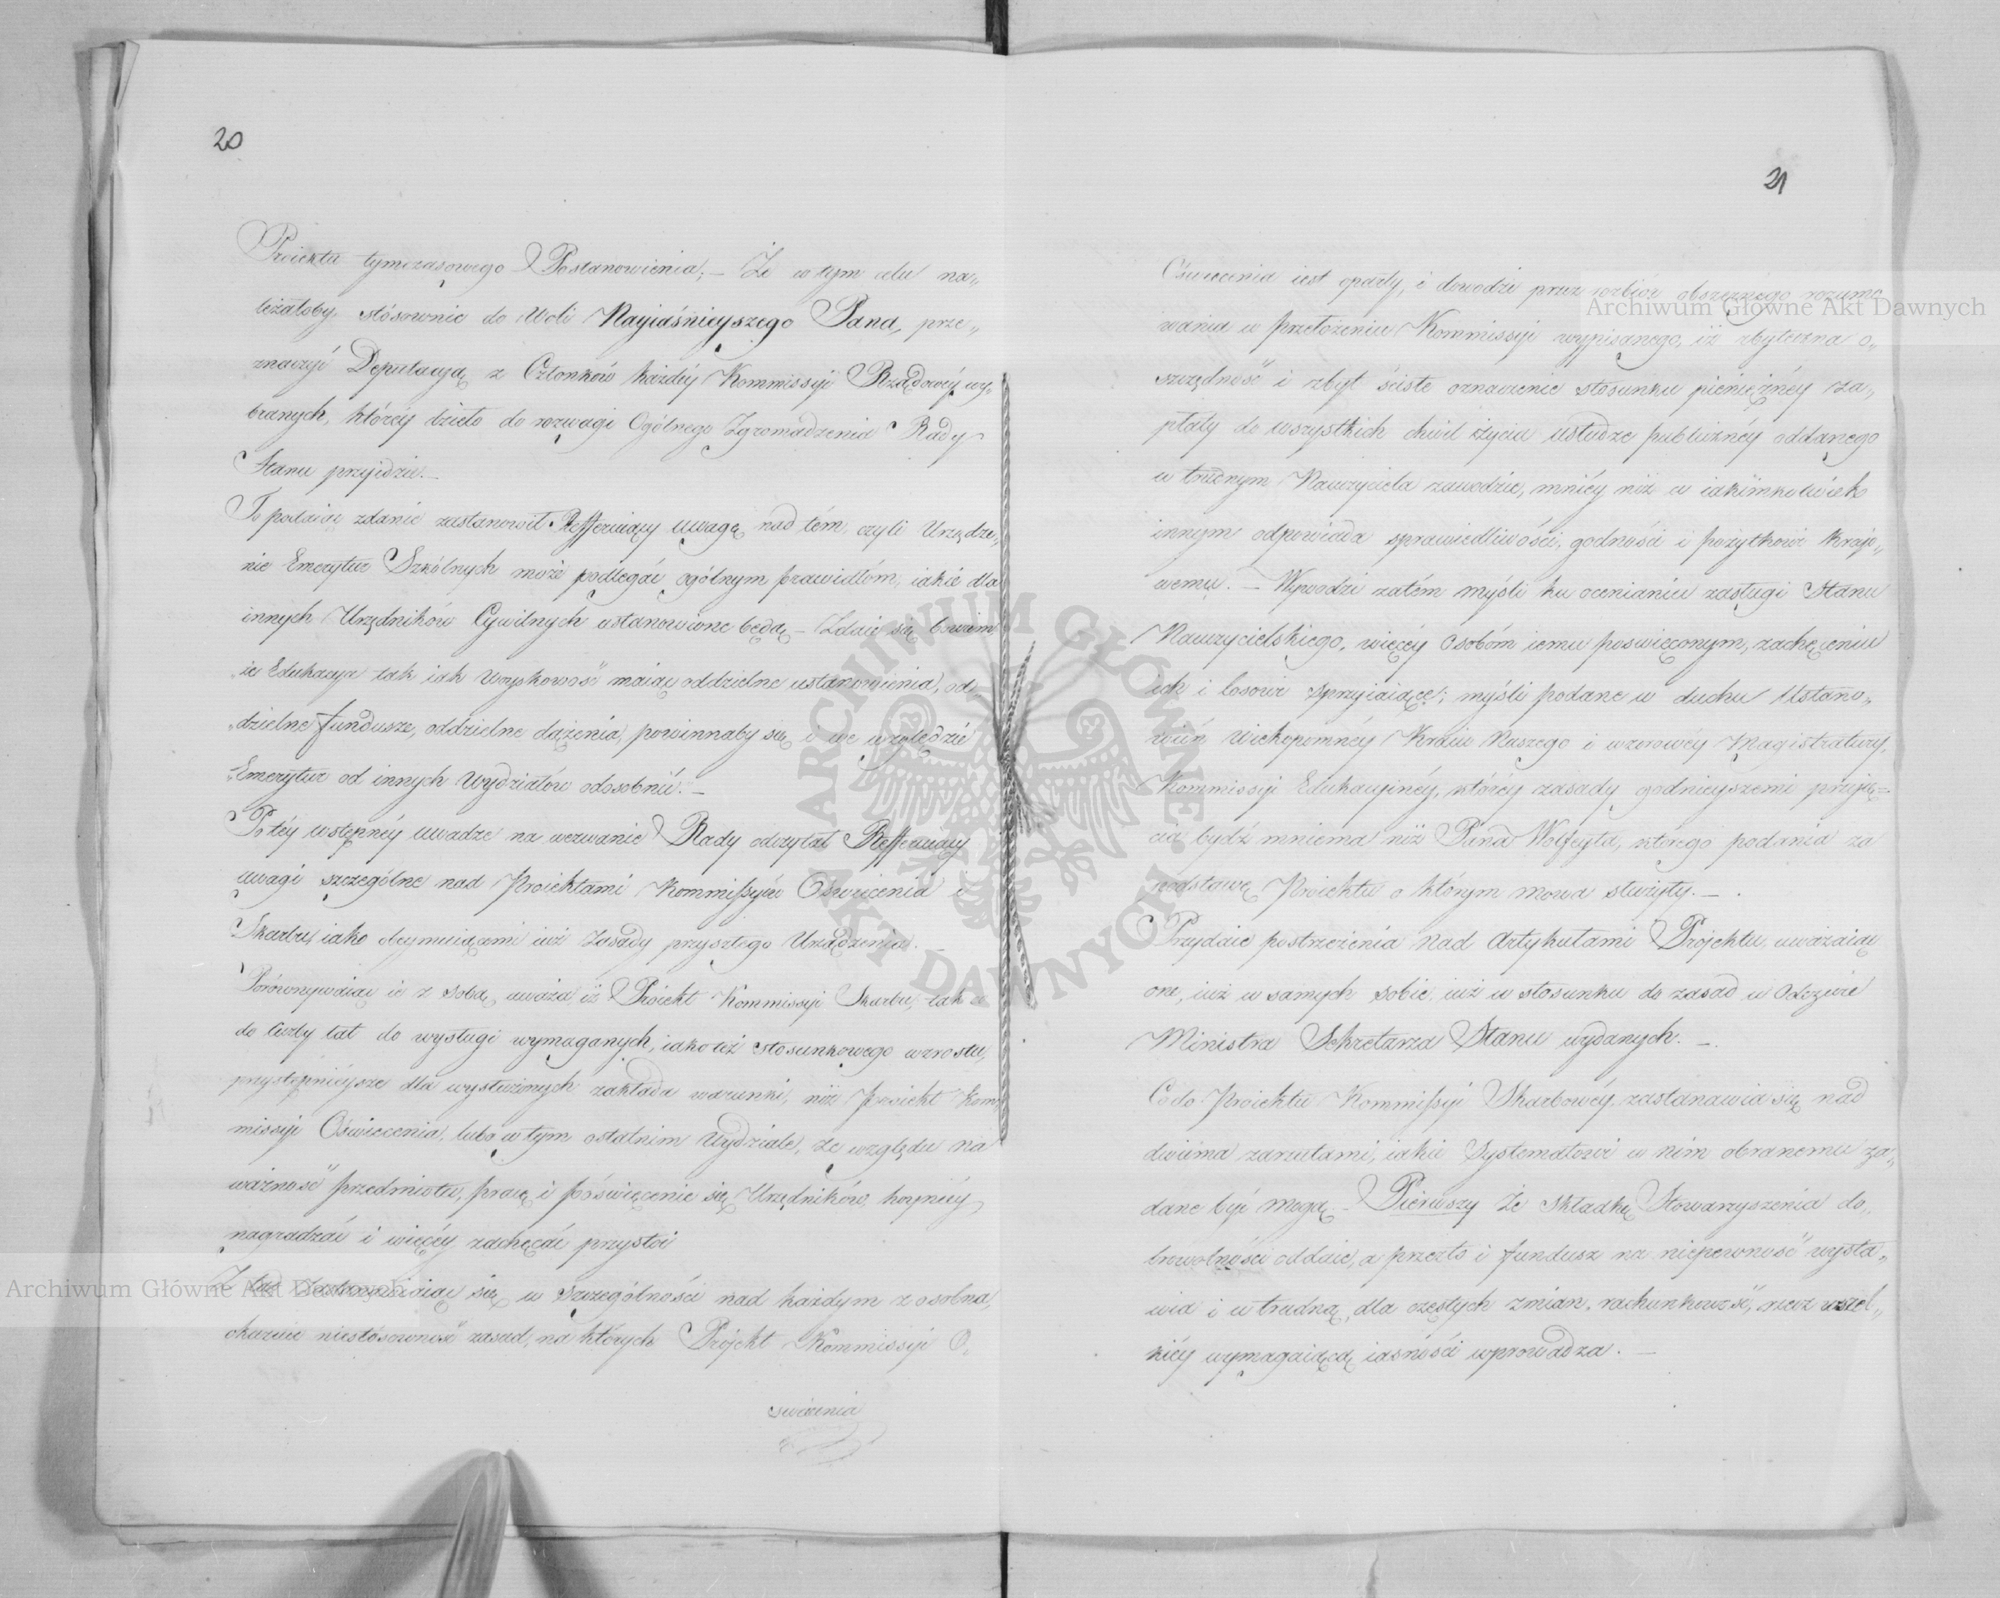 20
Proiektu tymczasowego Postanowienia; – Że w tym celu na„
leżałoby, stósownie do Woli Nayiaśnieyszego Pana, prze„
znaczyć Deputacyą z Członków każdéy Kommissyi Rządowéy wy„
branych, któréy dzieło do rozwagi Ogólnego Zgromadzenia Rady
Stanu przyidzie. –
To podaiąc zdanie zastanowił Refferuiący uwagę nad tém, czyli Urządze„
nie Emerytur Szkólnych może podlegać ogólnym prawidłóm, iakie dla
innych Urzędników Cywilnych ustanowione będą – Zdaie się bowiem
że Edukacya tak iak Woyskowość maiąc oddzielne ustanowienia, od„
„dzielne fundusze, oddzielne dążenia, powinnaby się i we względzie
„Emerytur od innych Wydziałów odosobnić. –
Po téy wstępnéy uwadze na wezwanie Rady odczytał Refferuiący
uwagi szczególne nad Proiektami Kommissyów Oświecenia i
Skarbu, iako obeymuiącemi iuż zasady przyszłego Urządzenia. –
Porównywaiąc ie z sobą, uważa iż Proiekt Kommissyi Skarbu, tak co
do liczby lat do wysługi wymaganych, iako też stosunkowego wzrostu,
przystępniéysze dla wysłużonych zakłada warunki, niż proiekt Kom
missyi Oświecenia, lubo w tym ostatnim Wydziale, ze względu na
ważność przedmiotu, pracę i poświęcenie się Urzędników, hoyniéy
nagradzać i więcéy zachęcać przystoi
Z tąd zastanawiaiąc się w szczególności nad każdym z osobna,
okazuie niestósowność zasad, na których Proiekt Kommissyi O„
świecenia
21
Oświecenia iest oparty, i dowodzi przez rozbiór obszernego rozumo
wania w przełożeniu Kommissyi wypisanego, iż zbyteczna o„
szczędność i zbyt ścisłe oznaczenie stosunku pieniężnéy za„
płaty do wszystkich chwil życia usłudze publicznéy oddanego
w trudnym Nauczyciela zawodzie, mniéy niż w iakimkolwiek
innym odpowiada sprawiedliwości, godności i pożytkowi krajo„
wemu. – Wywodzi zatém myśli ku ocenianiu zasługi Stanu
Nauczycielskiego, więcéy osobóm iemu poświęconym, zachęceniu
ich i losowi sprzyiaiące; myśli podane w duchu Ustano„
wień wiekopomnéy Kraiu Naszego i wzorowéy Magistratury,
Kommissyi Edukacyinéy, któréy zasady godnieyszemi przyię=
cia bydź mniema niż Pana Wolfeyla, którego podania za
podstawę Proiektu o którym mowa służyły. –
Przydaie postrzeżenia nad Artykułami Projektu, uważaiąc
one, iuż w samych sobie, iuż w stosunku do zasad w Odezwie
Ministra Sekretarza Stanu wydanych. –
Co do Proiektu Kommissyi Skarbowéy, zastanawia się nad
dwóma zarzutami, iakie Systematowi w nim obranemu za„
dane być mogą – Pierwszy Że składkę Stowarzyszenia do„
browolności oddaie, a przezto i fundusz na niepewność wysta„
wia i w trudną, dla częstych zmian, rachunkowość, rzecz wszel„
kiéy wymagaiącą iasności wprowadza. –
Archiwum Główne Akt Dawnych
Archiwum Główne Akt Dawnych
ARCHIWUM GŁÓWNE AKT DAWNYCH